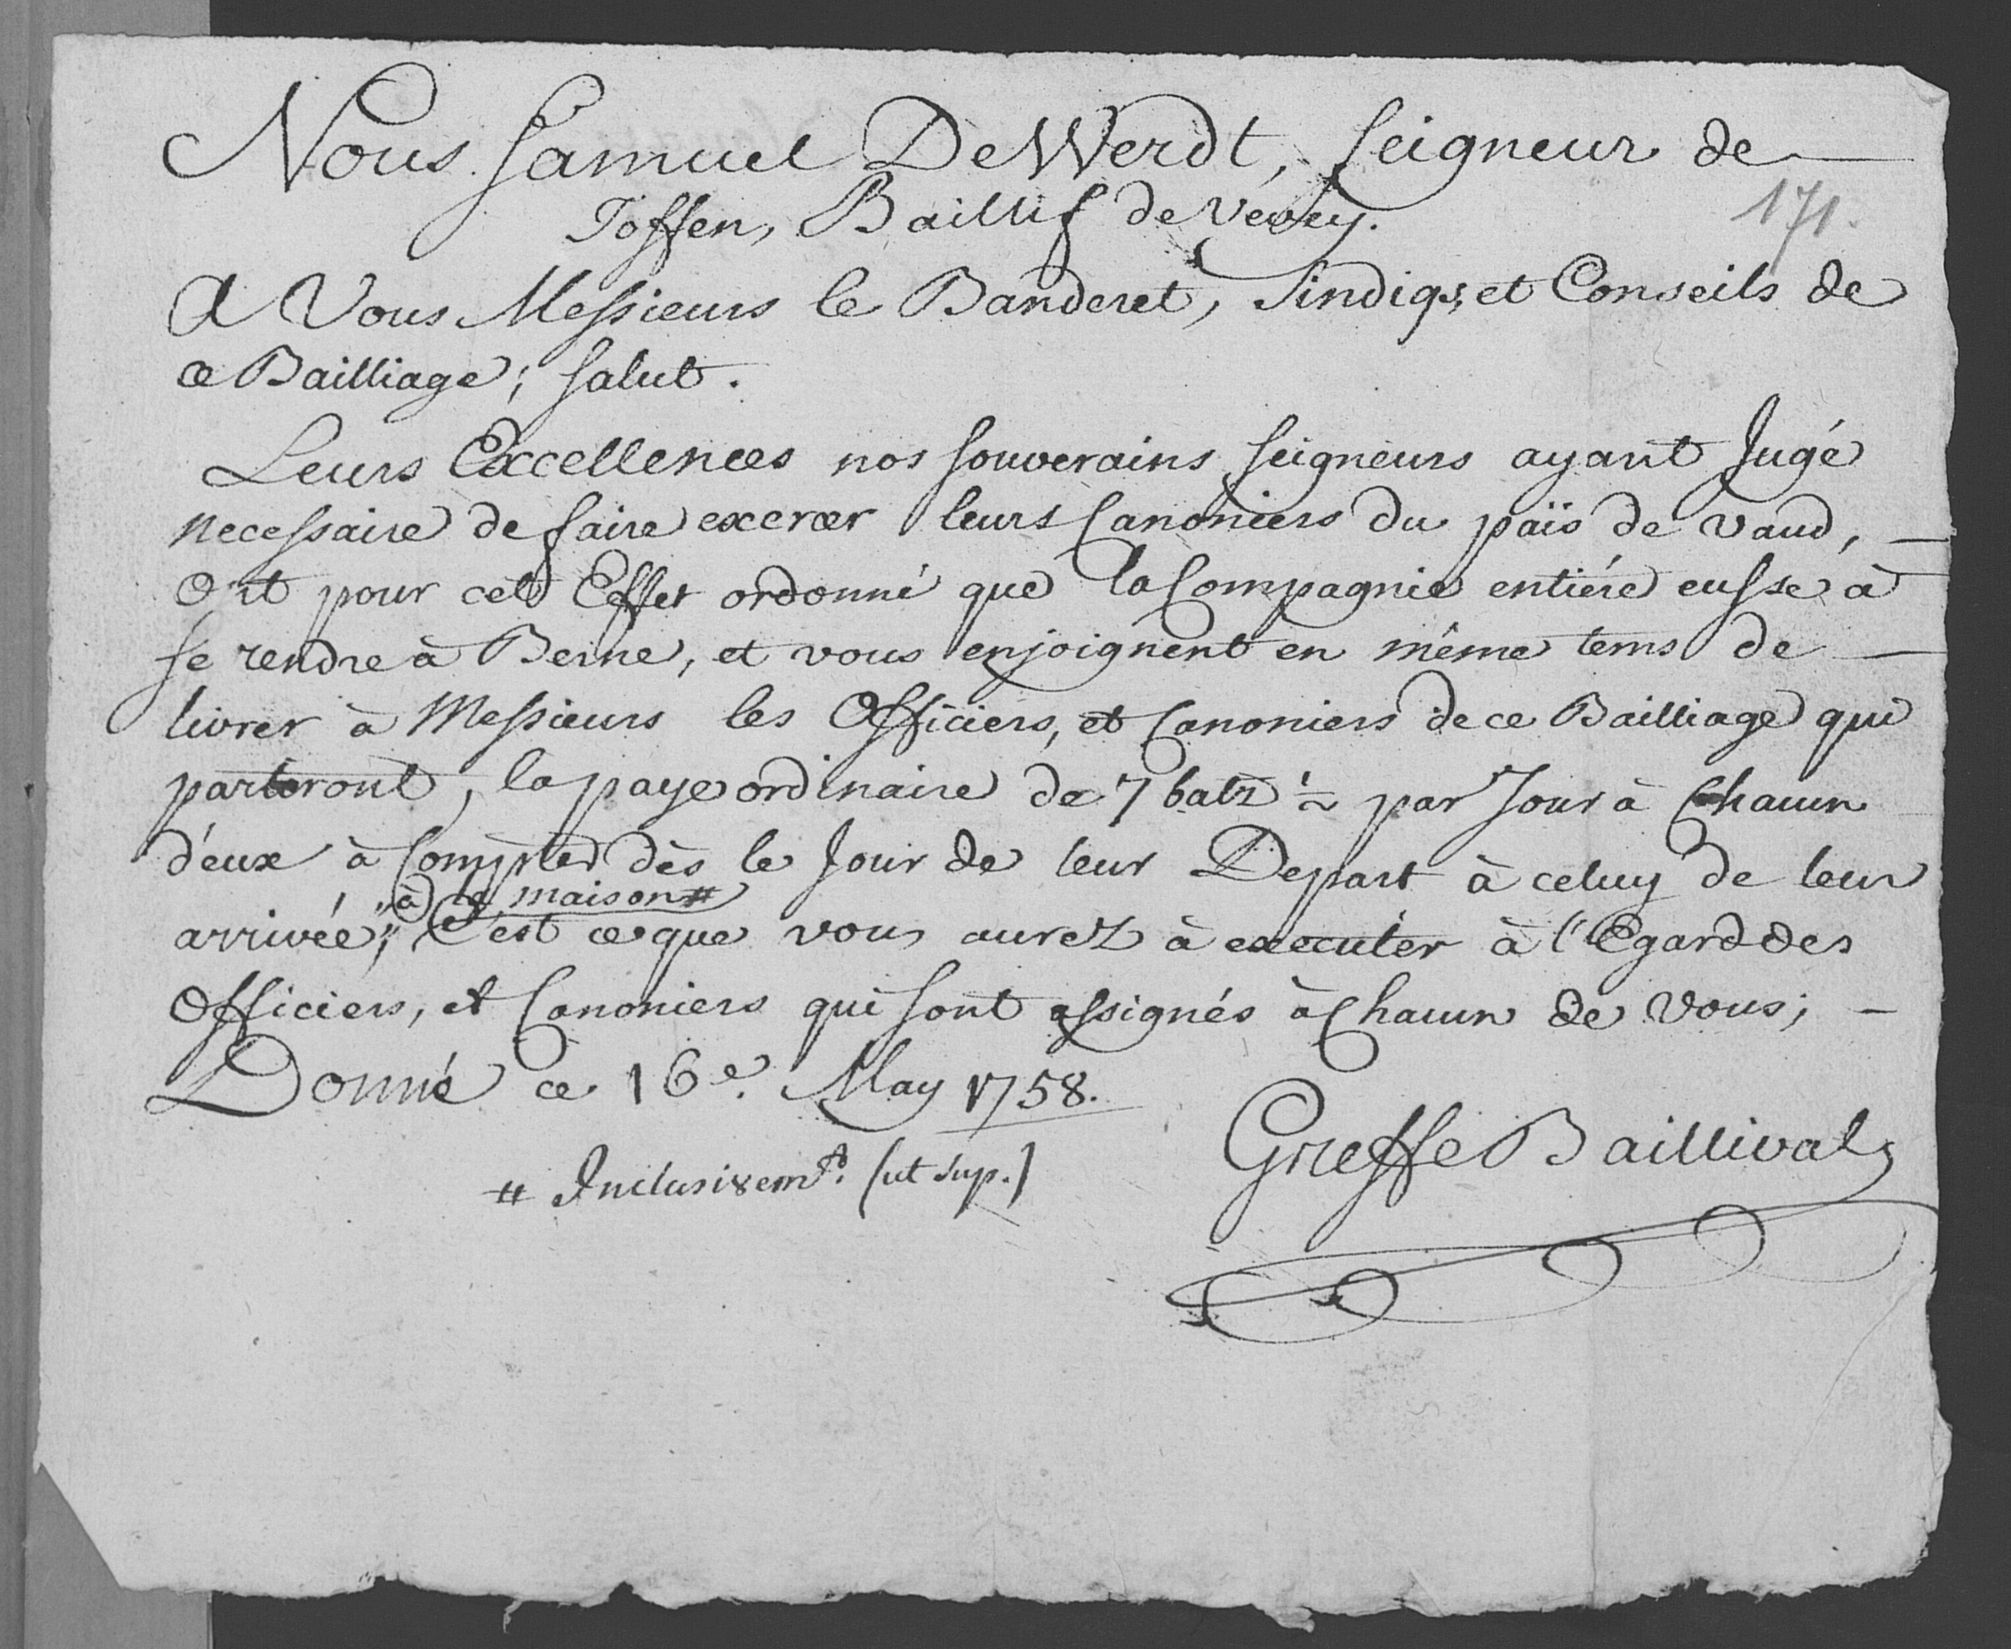 Nous Samuel DeWerdt, Seigneur de
Toffen, Baillif de Vevey.
171.
A Vous Messieurs le Banderet, Sindiqs, et Conseils de
ce Bailliage; Salut.
Leurs Excellences nos Souverains Seigneurs ayant Jugé
necessaire de faire exercer leurs Canoniers du païs de vaud,
Ont pour cet Effet ordonné que la Compagnie entiére eusse à
se rendre à Berne, et vous enjoignent en même tems de
livrer à Messieurs les Officiers, et Canoniers de ce Bailliage qui
parteront, la paye ordinaire de 7 batz ½ par Jour à Chacun
d'eux à Compter dès le Jour de leur Depart à celuy de leur
à la maison #
arrivée; C'est ce que vous aurez à executer à l'Egard des
Officiers, et Canoniers qui sont assignés à Chacun de Vous;
Donné ce 16e. May 1758.
Greffe Baillival
# Inclusivemt. (ut sup.)